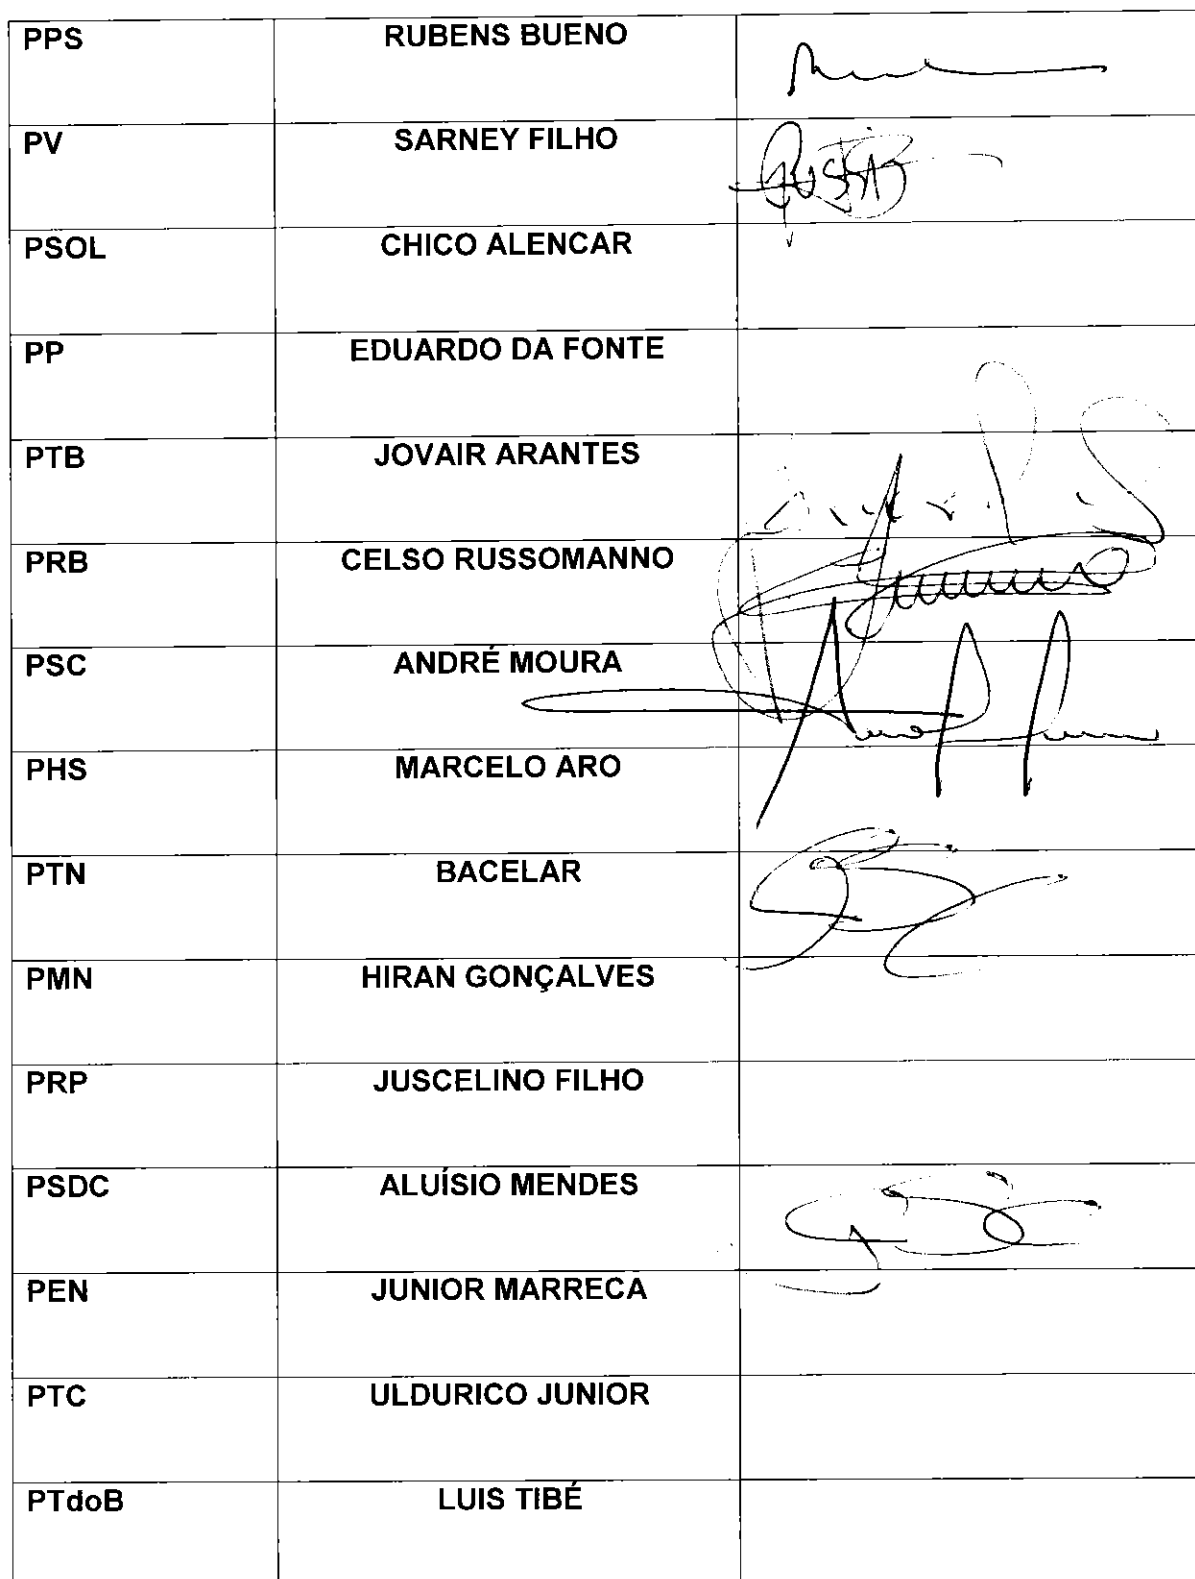 PPS RUBENS BUENO
PV SARNEY FILHO
PSOL CHICO ALENCAR
PP EDUARDO DA FONTE
PTB JOVAIR ARANTES
PRB CELSO RUSSOMANNO
PSC ANDRÉ MOURA
PHS MARCELO ARO
PTN BACELAR
PMN HIRAN GONÇALVES
PRP JUSCELINO FILHO
PSDC ALUÍSIO MENDES
PEN JUNIOR MARRECA
PTC ULDURICO JUNIOR
PTdoB LUIS TIBÉ